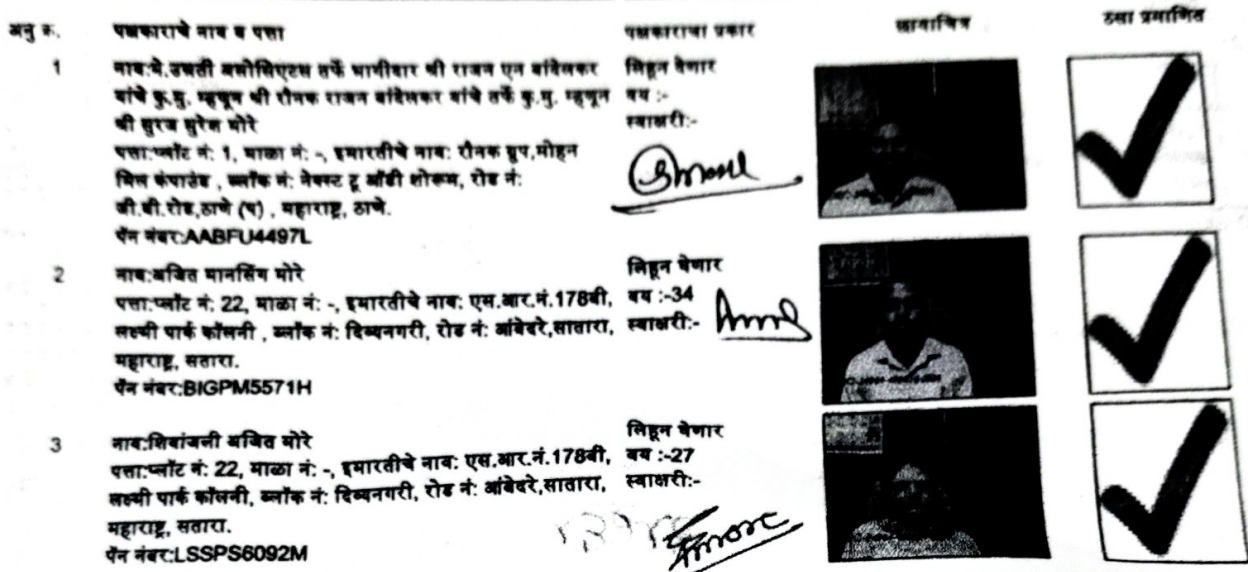 अनु क्र. पक्षकाराचे नाव व पत्ता पक्षकाराचा प्रकार छायाचित्र ठसा प्रमाणित
1 नाव:मे.उन्नती असोसिएटस तर्फे भागीदार श्री राजन एन बांदेलकर
यांचे कु.मु. म्हणून श्री रौनक राजन बांदेलकर यांचे तर्फे कु.मु. म्हणून
श्री सुरज सुरेश मोरे
पत्ता:प्लॉट नं: 1, माळा नं: -, इमारतीचे नाव: रौनक ग्रुप,मोहन
मिल कंपाउंड , ब्लॉक नं: नेक्स्ट टू ऑडी शोरूम, रोड नं:
जी.बी.रोड,ठाणे (प) , महाराष्ट्र, ठाणे.
पॅन नंबर:AABFU4497L
लिहून देणार
वय :-
स्वाक्षरी:-
2 नाव:अजित मानसिंग मोरे
पत्ता:प्लॉट नं: 22, माळा नं: -, इमारतीचे नाव: एस.आर.नं.178बी,
लक्ष्मी पार्क कॉलनी , ब्लॉक नं: दिव्यनगरी, रोड नं: आंबेदरे,सातारा,
महाराष्ट्र, सतारा.
पॅन नंबर:BIGPM5571H
लिहून घेणार
वय :-34
स्वाक्षरी:-
3 नाव:शिवांजनी अजित मोरे
पत्ता:प्लॉट नं: 22, माळा नं: -, इमारतीचे नाव: एस.आर.नं.178बी,
लक्ष्मी पार्क कॉलनी, ब्लॉक नं: दिव्यनगरी, रोड नं: आंबेदरे,सातारा,
महाराष्ट्र, सतारा.
पॅन नंबर:LSSPS6092M
लिहून घेणार
वय :-27
स्वाक्षरी:-